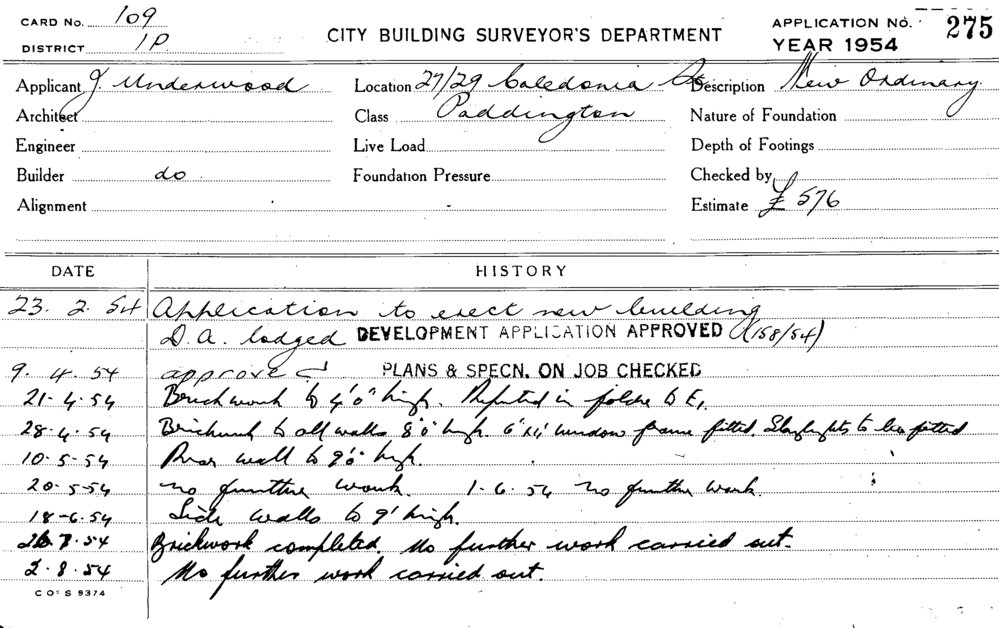 CARD No. 109
DISTRICT 1P.
CITY BUILDING SURVEYOR'S DEPARTMENT
APPLICATION No. 275
YEAR 1954
Applicant J. Underwood Location 27/29 Caledonia St Description New Ordinary
Architect Class Paddington Nature of Foundation
Engineer Live Load Depth of Footings
Builder do Foundation Pressure Checked by
Alignment Estimate £ 576
DATE HISTORY
23. 2. 54 Application to erect new building
D.A. lodged DEVELOPMENT APPLICATION APPROVED (158/54)
9. 4. 54 approved PLANS & SPECN. ON JOB CHECKED
21-4-54 Brickwork to 4'0" high. in folder to E1.
28-4-54 Brickwork to all walls 8'0" high. window frame fitted. to be fitted
10-5-54 Rear wall to 9'0" high.
20-5-54 no further work. 1-6-54 no further work.
18-6-54 Side walls to 9' high.
7.54 Brickwork completed. No further work carried out.
2.8.54 No further work carried out.
CO: S 9374